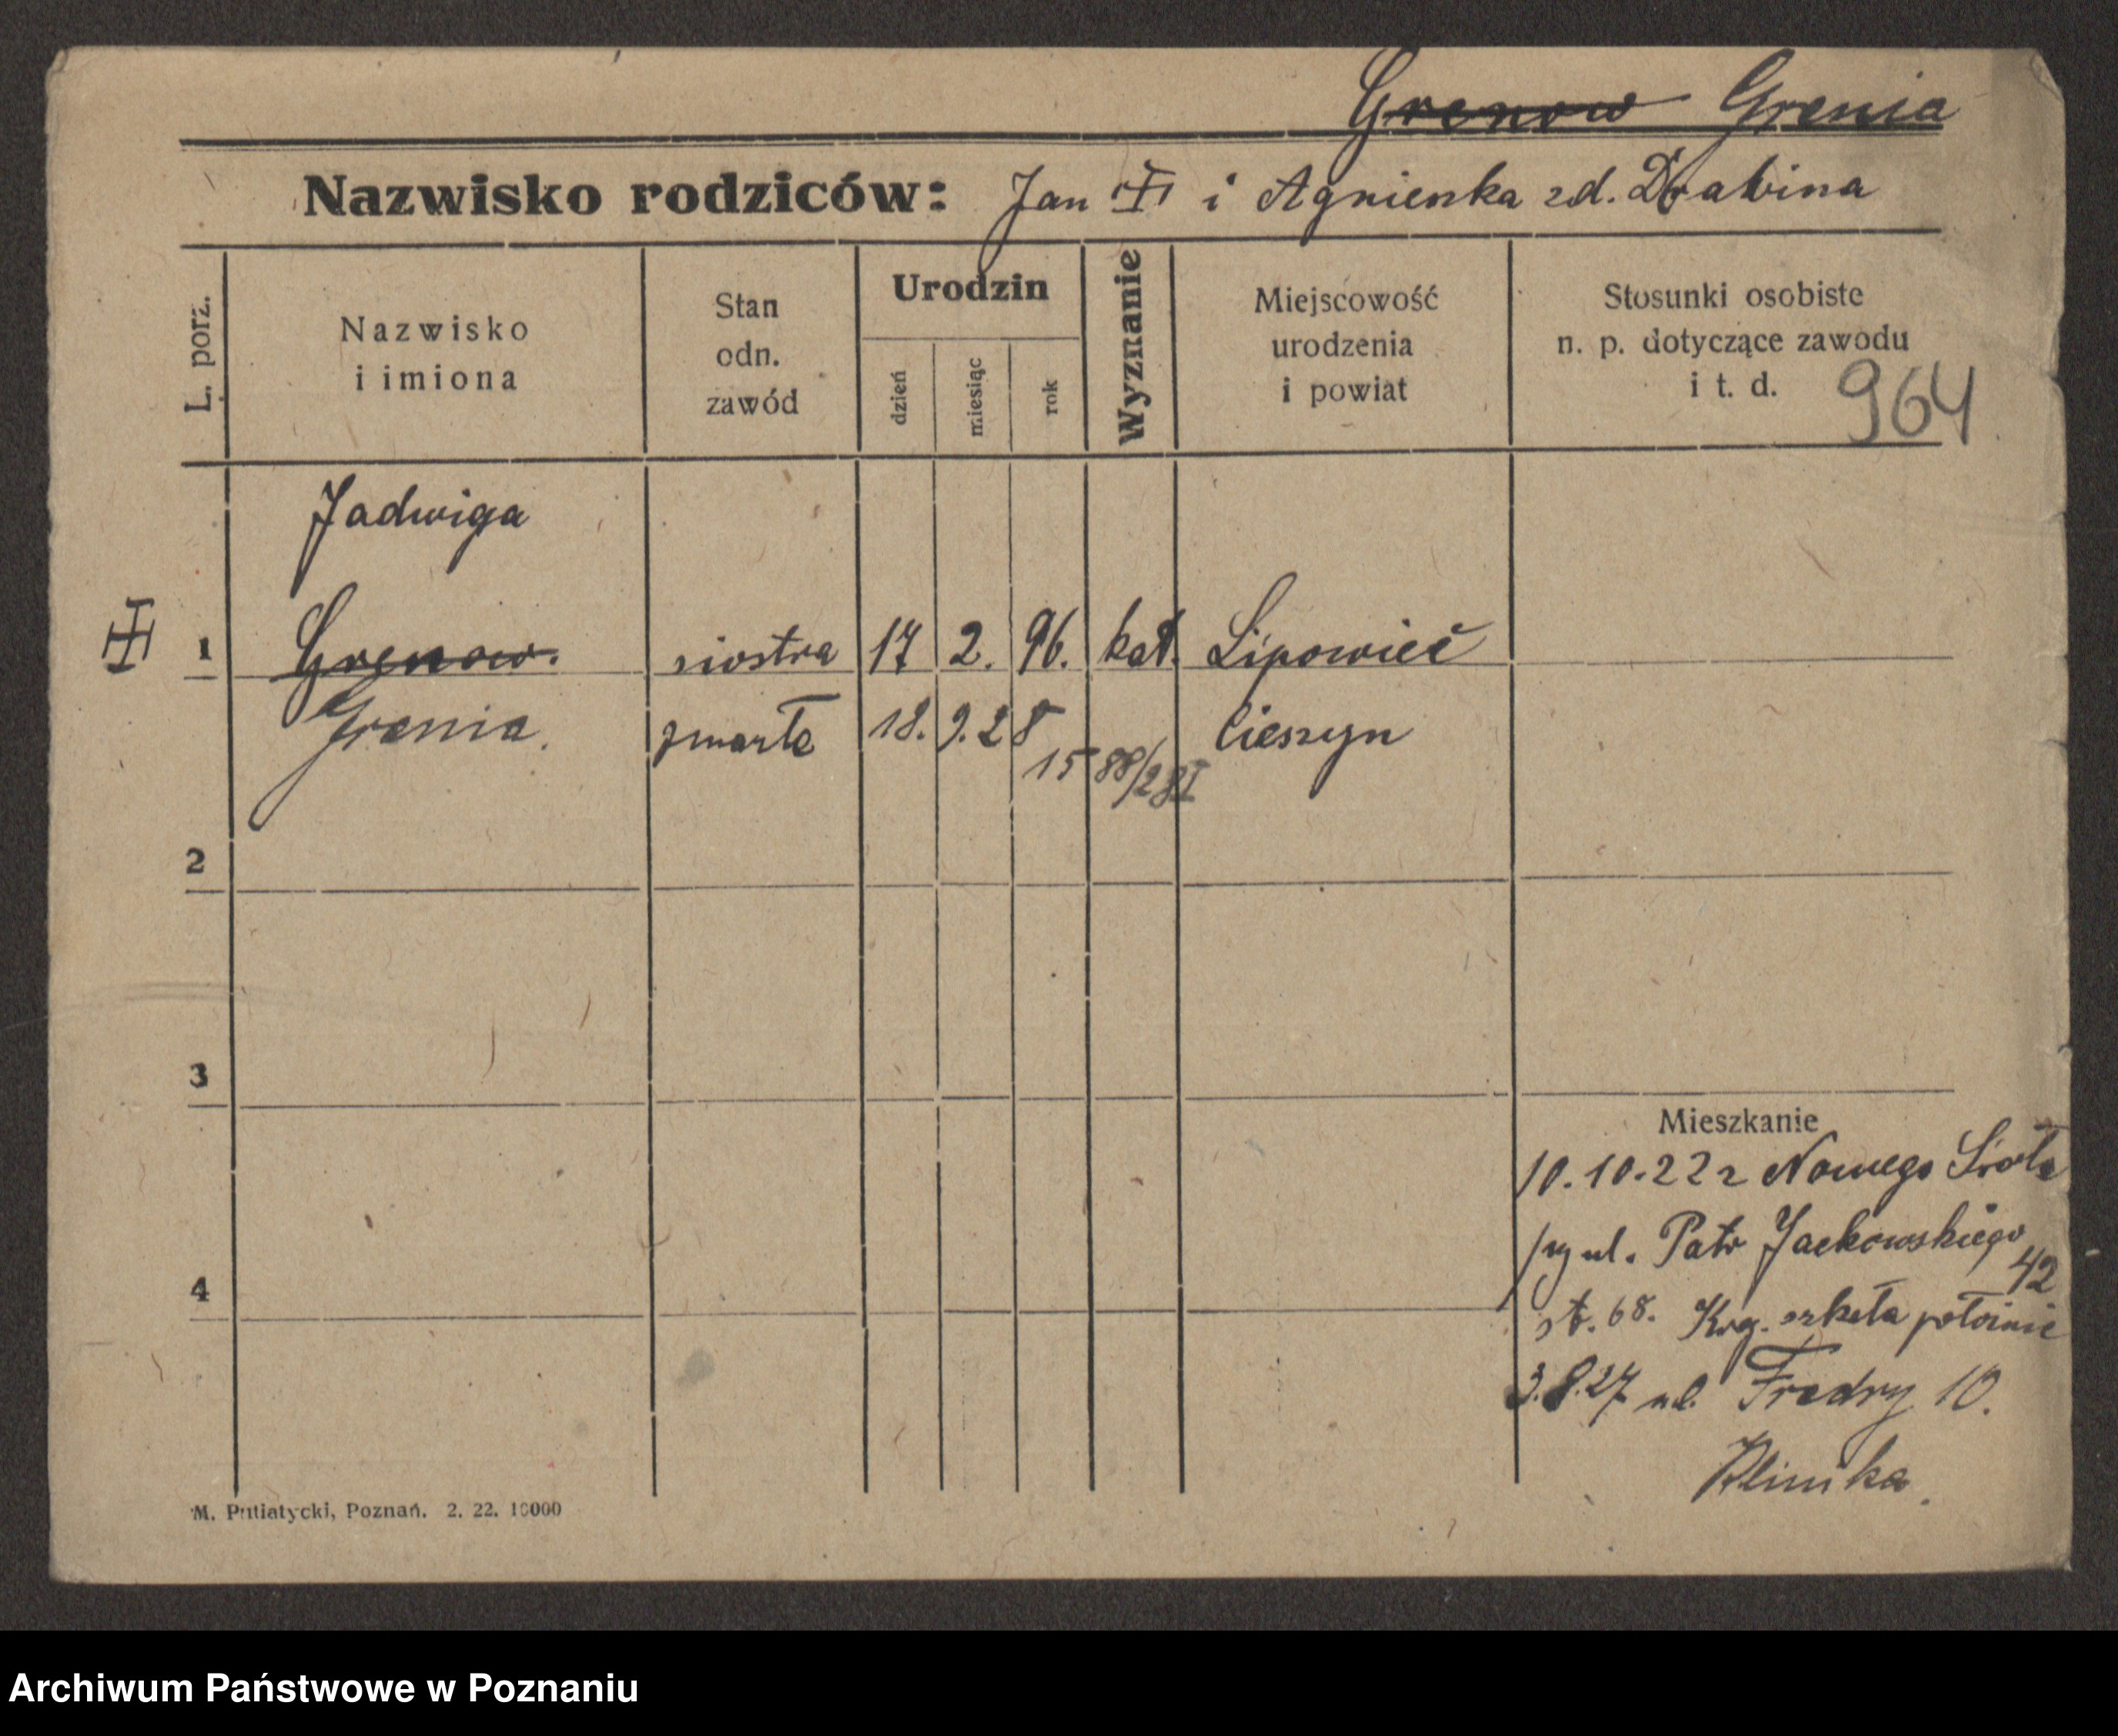 Grenow Grenia
Nazwisko rodziców: Jan i Agnieska zd. Drabina
L. porz.
Nazwisko
i imiona
Stan
odn.
zawód
Urodzin
dzień
miesiąc
rok
Wyznanie
Miejscowość
urodzenia
i powiat
Stosunki osobiste
n. p. dotyczące zawodu
i t. d.
964
Jadwiga
1 Grenow. siostra 17 2. 96. kat. Lipowieč
Grenia. zmarła 18. 9. 28 Cieszyn
1588/28 I
2
3
Mieszkanie
10.10.22 z Nowego
ul. Patr Jackowskiego
42
4
68. szkoła
3.8.27 ul. Fredry 10.
Klinika.
M. Putiatycki, Poznań. 2. 22. 10000
Archiwum Państwowe w Poznaniu